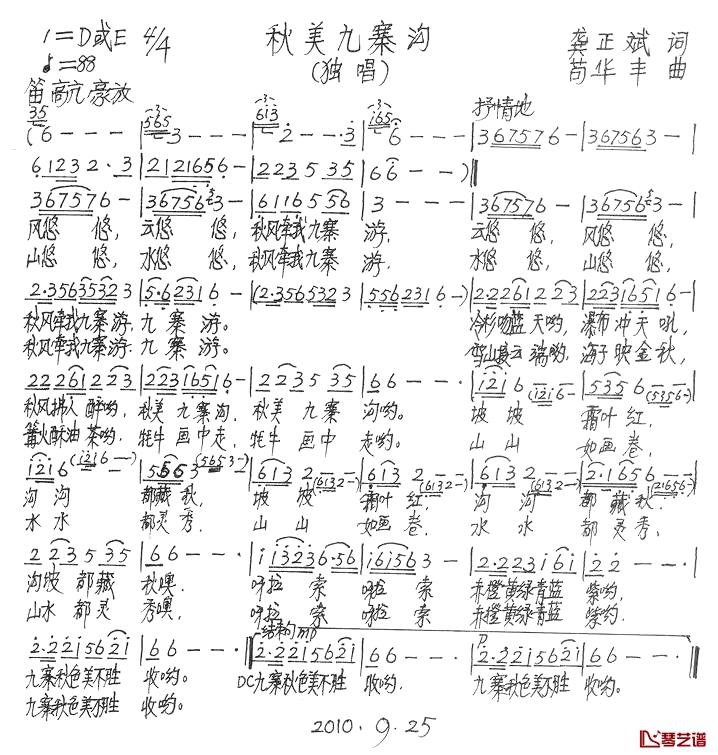 1=D或E 4/4 秋美九寨沟 龚正斌 词
♩=88 (独唱) 苟华丰 曲
笛 高亢豪放 抒情地
(6 - - - 3 - - - 2 - - ·3 6 - - - | 367576 - | 367563 - |
61232·3 | 2121656 - | 223535 | 66 - - )
367576 - | 3 - - - | 367576 -
风悠 悠, 云悠 悠, 秋风牵我九寨 游, 云悠 悠, 风悠 悠,
山悠 悠, 水悠 悠, 秋风牵我九寨 游. 水悠 悠, 山悠 悠,
2·356535323 | 5·62316 - | (2·356535323 | 5562316 -) | 2·22612 223 | 22316516 -
秋风牵我九寨游. 九寨 游。 冷杉吻蓝天哟, 瀑布冲天吼,
秋风牵我九寨游. 九寨 游。 雪山云端哟, 海子映金秋,
22261223 | 22316516 - | 223535 | 66 - - · | i2i6 (i2i6 - | 5356 (5356 -)
秋风拂人醉哟, 秋美九寨沟, 秋美 九寨 沟哟。 坡 坡 霜叶红,
篝火酥油茶哟, 牦牛画中走, 牦牛 画中 走哟。 山 山 如画卷,
i2i6 (i2i6 - - | 5563 (5653 - ) | 613 2 - (6132 -) | 613 2 - (6132 -) | 613 2 - (6132 -) | 2·1656 (21656 -)
沟 沟 都藏秋, 坡 坡 霜叶红, 沟 沟 都藏秋.
水 水 都灵秀, 山 山 如画卷, 水 水 都灵秀,
223535 | 66 - - · | i i3236·56 | i6i563 - | 2·223i6i | 22 - - ·
沟坡都藏 秋噢. 呀拉 索 呀拉 索 赤橙黄绿青蓝 紫哟,
山水都灵 秀噢, 呀拉 索 呀拉 索 赤橙黄绿青蓝 紫哟.
结束句
2·22i562i | 66 - - · | 2·22i562i | 66 - - - | 2·22i562i | 66 - - - |
九寨秋色美不胜 收哟。 DC九寨秋色美不胜 收哟. 九寨秋色美不胜 收哟。
九寨秋色美不胜 收哟。
2010.9.25
琴艺谱